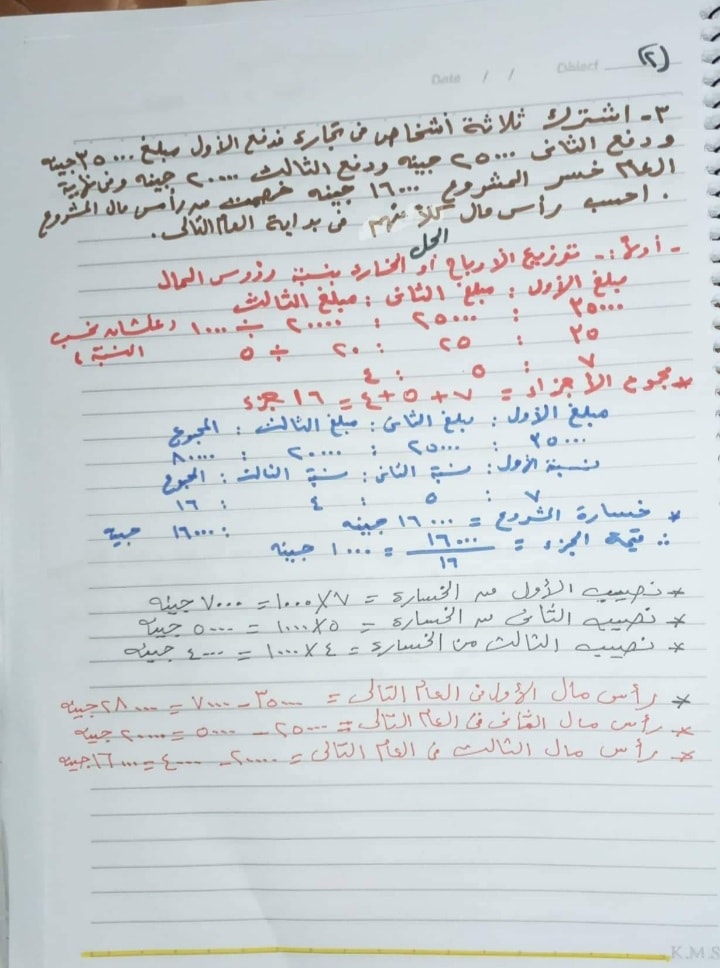 (٢)
Date / / Object
٣- اشترك ثلاثة أشخاص فى تجارة فدفع الأول مبلغ ٣٥٠٠٠ جنيه
ودفع الثانى ٢٥٠٠٠ جنيه ودفع الثالث ٢٠٠٠٠ جنيه وفى نهاية
العام خسر المشروع ١٦٠٠٠ جنيه خصمت من رأس مال المشروع
. احسب رأس مال كلاً منهم فى بداية العام التالى.
الحل
- أولاً:- توزيع الأرباح أو الخسارة بنسبة رؤوس المال
مبلغ الأول : مبلغ الثانى : مبلغ الثالث
٣٥٠٠٠ : ٢٥٠٠٠ : ٢٠٠٠٠ ÷ ١٠٠٠ (علشان نحسب
٣٥ : ٢٥ : ٢٠ ÷ ٥ النسبة)
٧ : ٥ : ٤
* مجموع الأجزاء = ٧ + ٥ + ٤ = ١٦ جزء
مبلغ الأول : مبلغ الثانى : مبلغ الثالث : المجموع
٣٥٠٠٠ : ٢٥٠٠٠ : ٢٠٠٠٠ : ٨٠٠٠٠
نسبة الأول : نسبة الثانى : نسبة الثالث : المجموع
٧ : ٥ : ٤ : ١٦
* خسارة المشروع = ١٦٠٠٠ جنيه : ١٦٠٠٠ جنيه
∴ قيمة الجزء = ١٦٠٠٠ / ١٦ = ١٠٠٠ جنيه
* نصيب الأول من الخسارة = ٧ × ١٠٠٠ = ٧٠٠٠ جنيه
* نصيب الثانى من الخسارة = ٥ × ١٠٠٠ = ٥٠٠٠ جنيه
* نصيب الثالث من الخسارة = ٤ × ١٠٠٠ = ٤٠٠٠ جنيه
* رأس مال الأول فى العام التالى = ٣٥٠٠٠ - ٧٠٠٠ = ٢٨٠٠٠ جنيه
* رأس مال الثانى فى العام التالى = ٢٥٠٠٠ - ٥٠٠٠ = ٢٠٠٠٠ جنيه
* رأس مال الثالث فى العام التالى = ٢٠٠٠٠ - ٤٠٠٠ = ١٦٠٠٠ جنيه
K.M.S